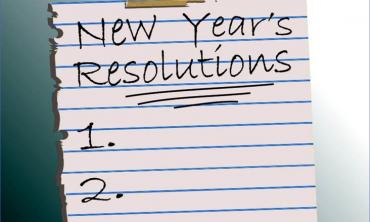 New Year's
Resolutions
1.
2.